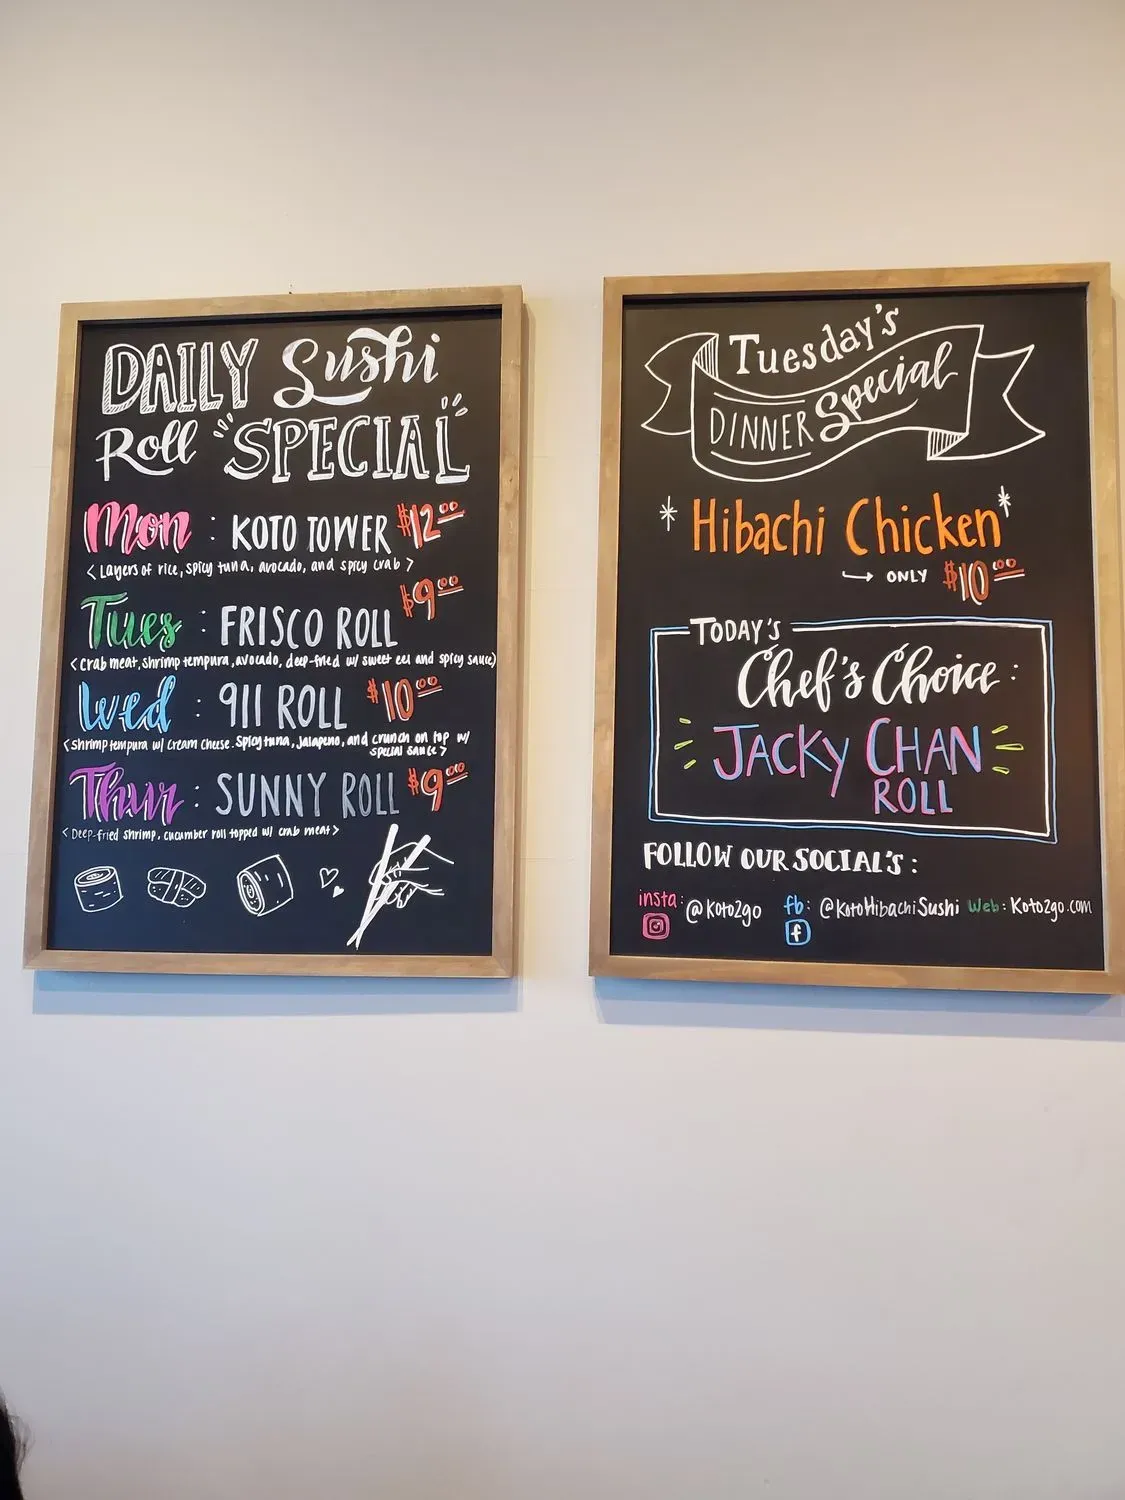 DAILY Sushi
Roll "SPECIAL"
Mon : KOTO TOWER $12.00
<Layers of rice, spicy tuna, avocado, and spicy crab>
Tues : FRISCO ROLL $9.00
<crab meat, shrimp tempura, avocado, deep-fried w/ sweet eel and spicy sauce>
Wed : 911 ROLL $10.00
<shrimp tempura w/ cream cheese. spicy tuna, jalapeno, and crunch on top w/
special sauce>
Thur : SUNNY ROLL $9.00
<Deep-fried shrimp, cucumber roll topped w/ crab meat>
Tuesday's
DINNER Special
* Hibachi Chicken *
→ ONLY $10.00
TODAY'S
Chef's Choice :
JACKY CHAN
ROLL
FOLLOW OUR SOCIAL'S :
insta: @Koto2go fb: @KotoHibachiSushi Web: Koto2go.com